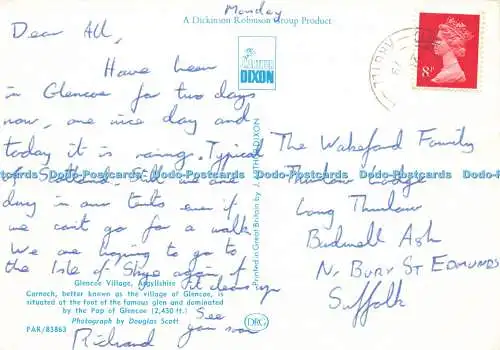 Monday
A Dickinson Robinson Group Product
Dear All,
Have been
in Glencoe for two days
now, one nice day and
today it is raing. Typical
of Scotland. Still we are
dry in our tents even if
we can't go for a walk
We are hoping to go to
the Isle of Skye again if
it clears up
See
you soon
Richard
Glencoe Village, Argyllshire
Carnoch, better known as the village of Glencoe, is
situated at the foot of the famous glen and dominated
by the Pap of Glencoe (2,430 ft.)
Photograph by Douglas Scott
PAR/83863
DIXON
Printed in Great Britain by J. Arthur Dixon
DRG
ARGYLL
8P
The Wakeford Family
Thurlow Lodge
Long Thurlow
Badwell Ash
Nr BURY ST EDMUNDS
Suffolk
Dodo-Postcards Dodo-Postcards Dodo-Postcards Dodo-Postcards Dodo-Postcards Dodo-Postcards